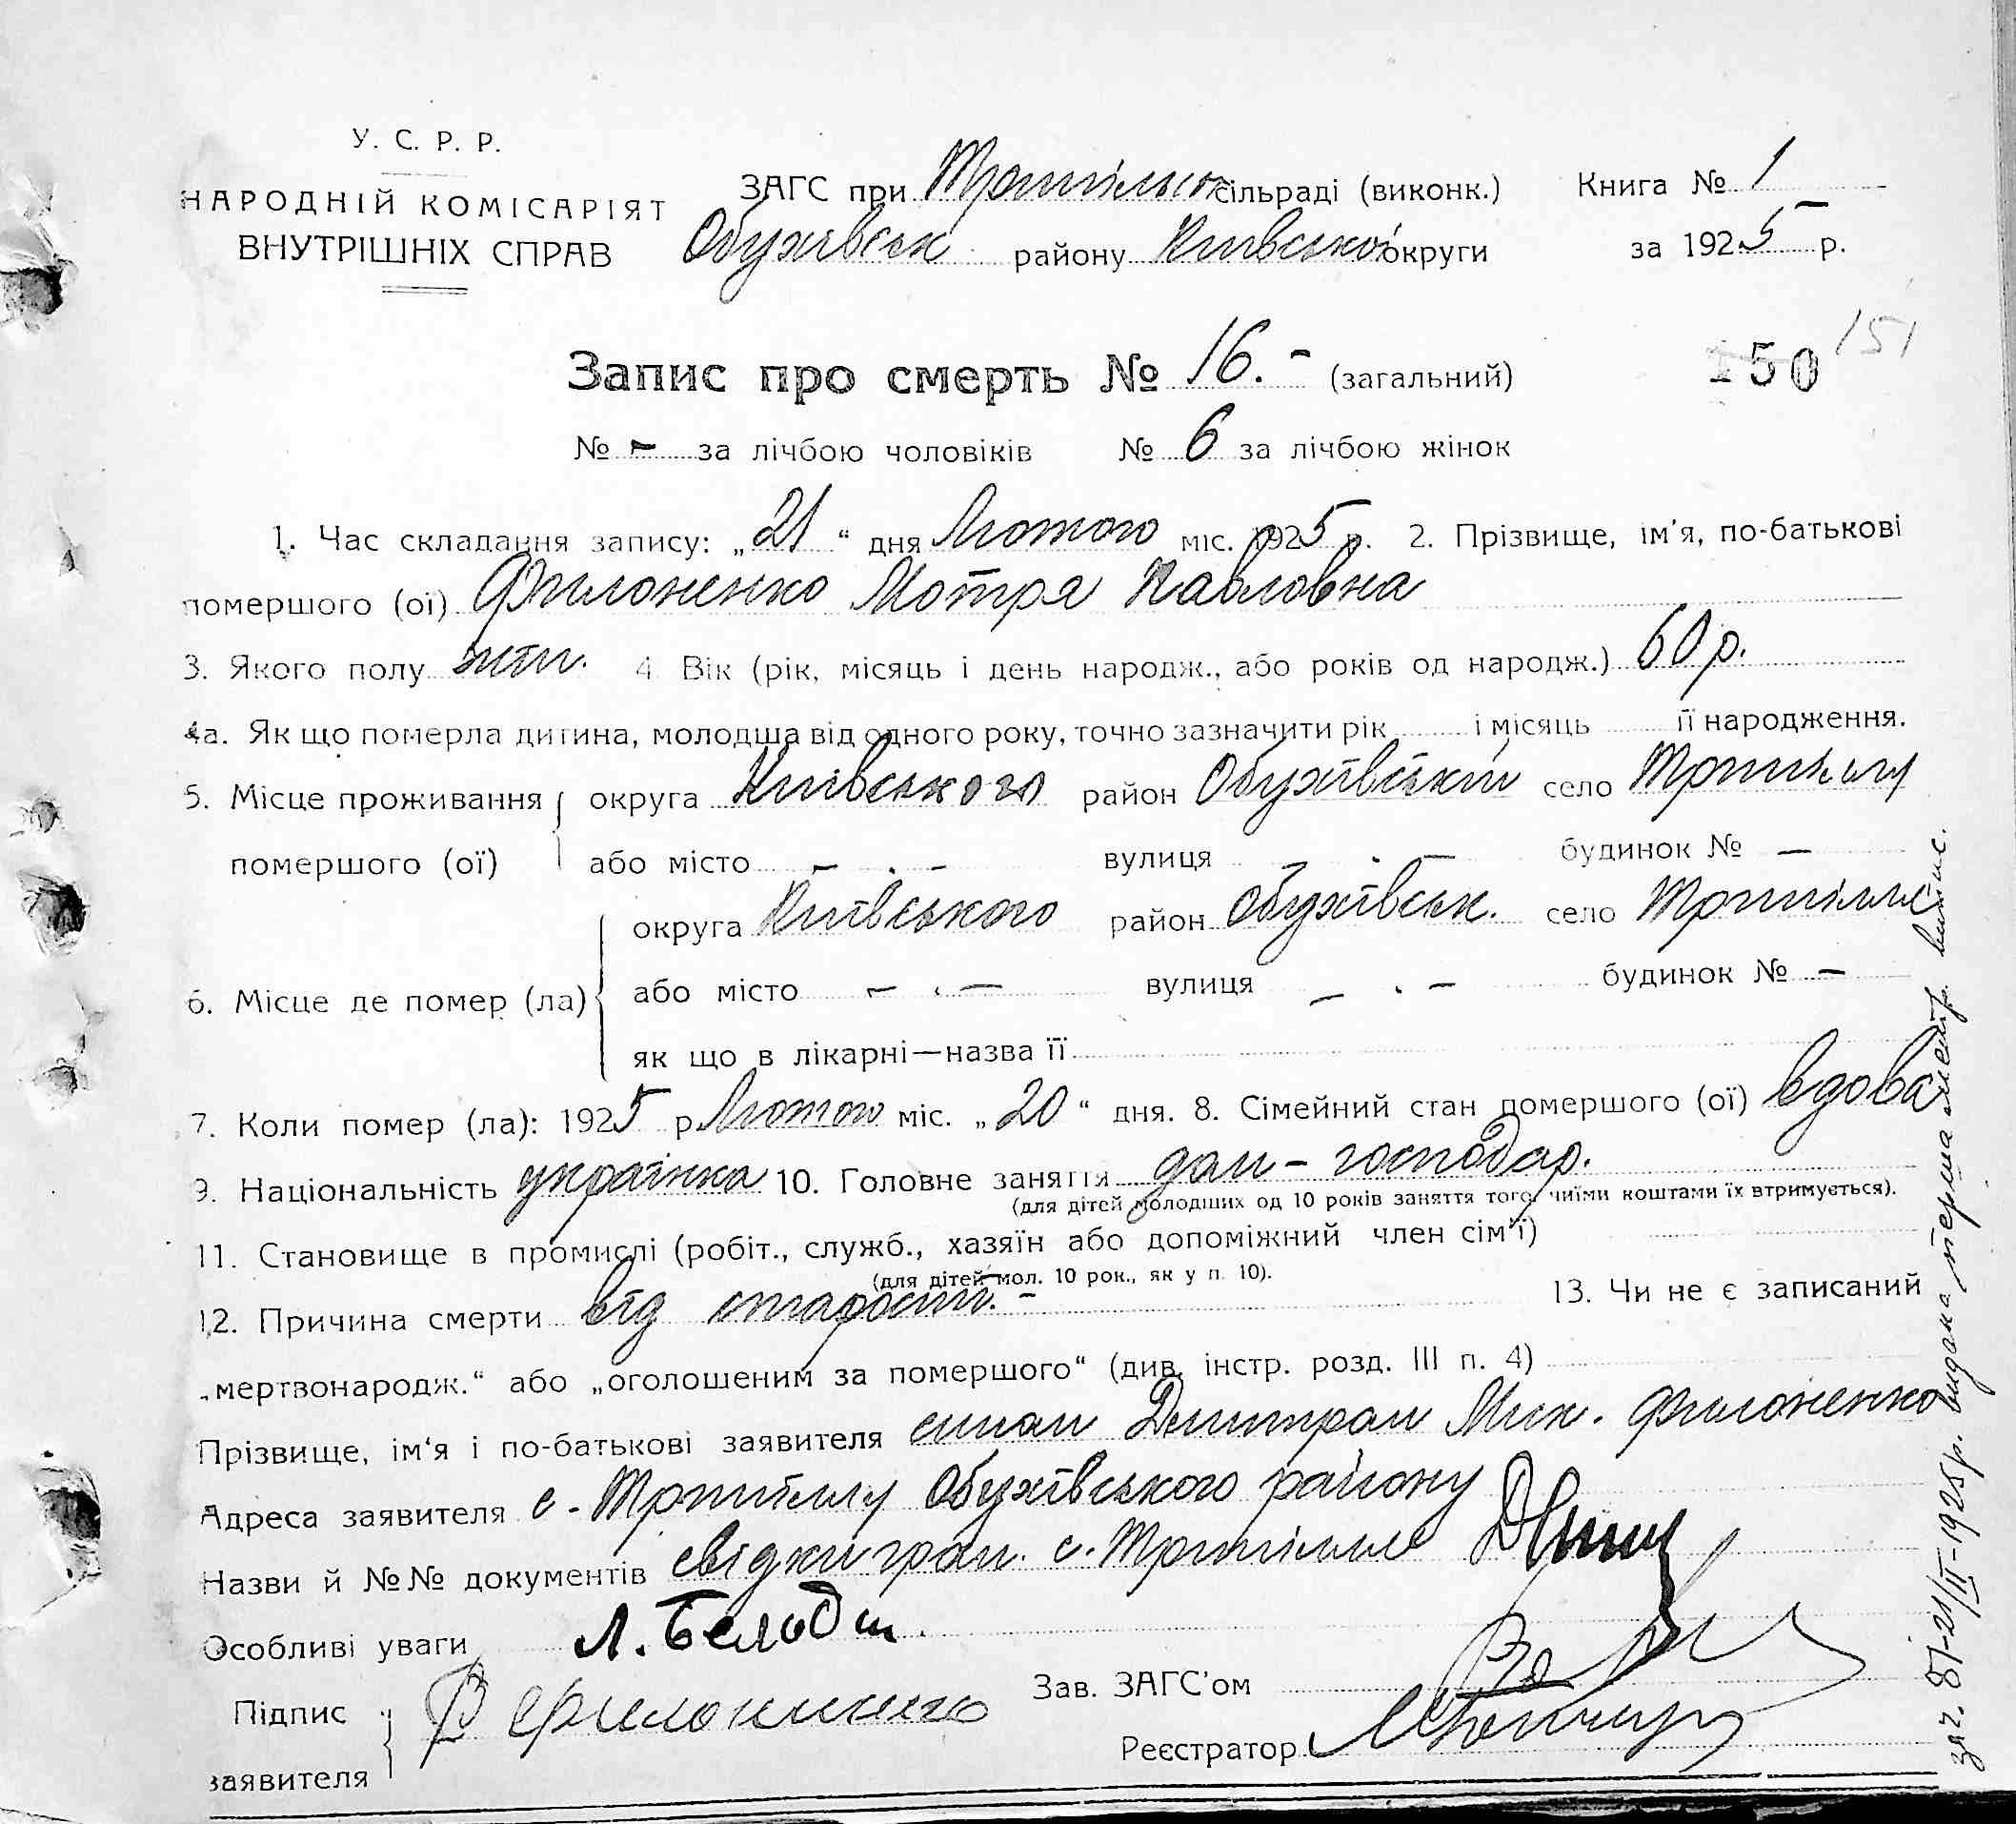 У. С. Р. Р.
НАРОДНІЙ КОМІСАРІЯТ
ВНУТРІШНІХ СПРАВ
ЗАГС при Трипільск сільраді (виконк.) Книга № 1
Обухівськ району Київської округи за 1925 р.
Запис про смерть № 16.- (загальний) 150 151
№ - за лічбою чоловіків № 6 за лічбою жінок
1. Час складання запису: „21“ дня Лютого міс. 1925 р. 2. Прізвище, ім'я, по-батькові
помершого (ої) Филоненко Мотря Павловна
3. Якого полу жін. 4 Вік (рік, місяць і день народж., або років од народж.) 60 р.
4а. Як що померла дитина, молодша від одного року, точно зазначити рік і місяць її народження.
5. Місце проживання округа Київського район Обухівський село Трипіллу
помершого (ої) або місто - . - вулиця . - будинок № -
округа Київського район Обухівськ. село Трипіллє
6. Місце де помер (ла) або місто - . - вулиця - . - будинок № -
як що в лікарні—назва її
7. Коли помер (ла): 1925 р Лютого міс. „20“ дня. 8. Сімейний стан помершого (ої) вдова
9. Національність українка 10. Головне заняття дом-господар.
(для дітей молодших од 10 років заняття того, чиїми коштами їх втримується).
11. Становище в промислі (робіт., служб., хазяїн або допоміжний член сім'ї)
(для дітей мол. 10 рок., як у п. 10).
12. Причина смерти від старости. - 13. Чи не є записаний
„мертвонародж.“ або „оголошеним за помершого“ (див. інстр. розд. III п. 4)
Прізвище, ім'я і по-батькові заявителя сином Дмитром Мик. Филоненко
Адреса заявителя с. Трипіллу Обухівського району
Назви й №№ документів свідки гром. с. Трипіллє
Особливі уваги Л.
Підпис заявителя Филоненко
Зав. ЗАГС'ом
Реєстратор
81-21/II-1925р. видана перша випис.